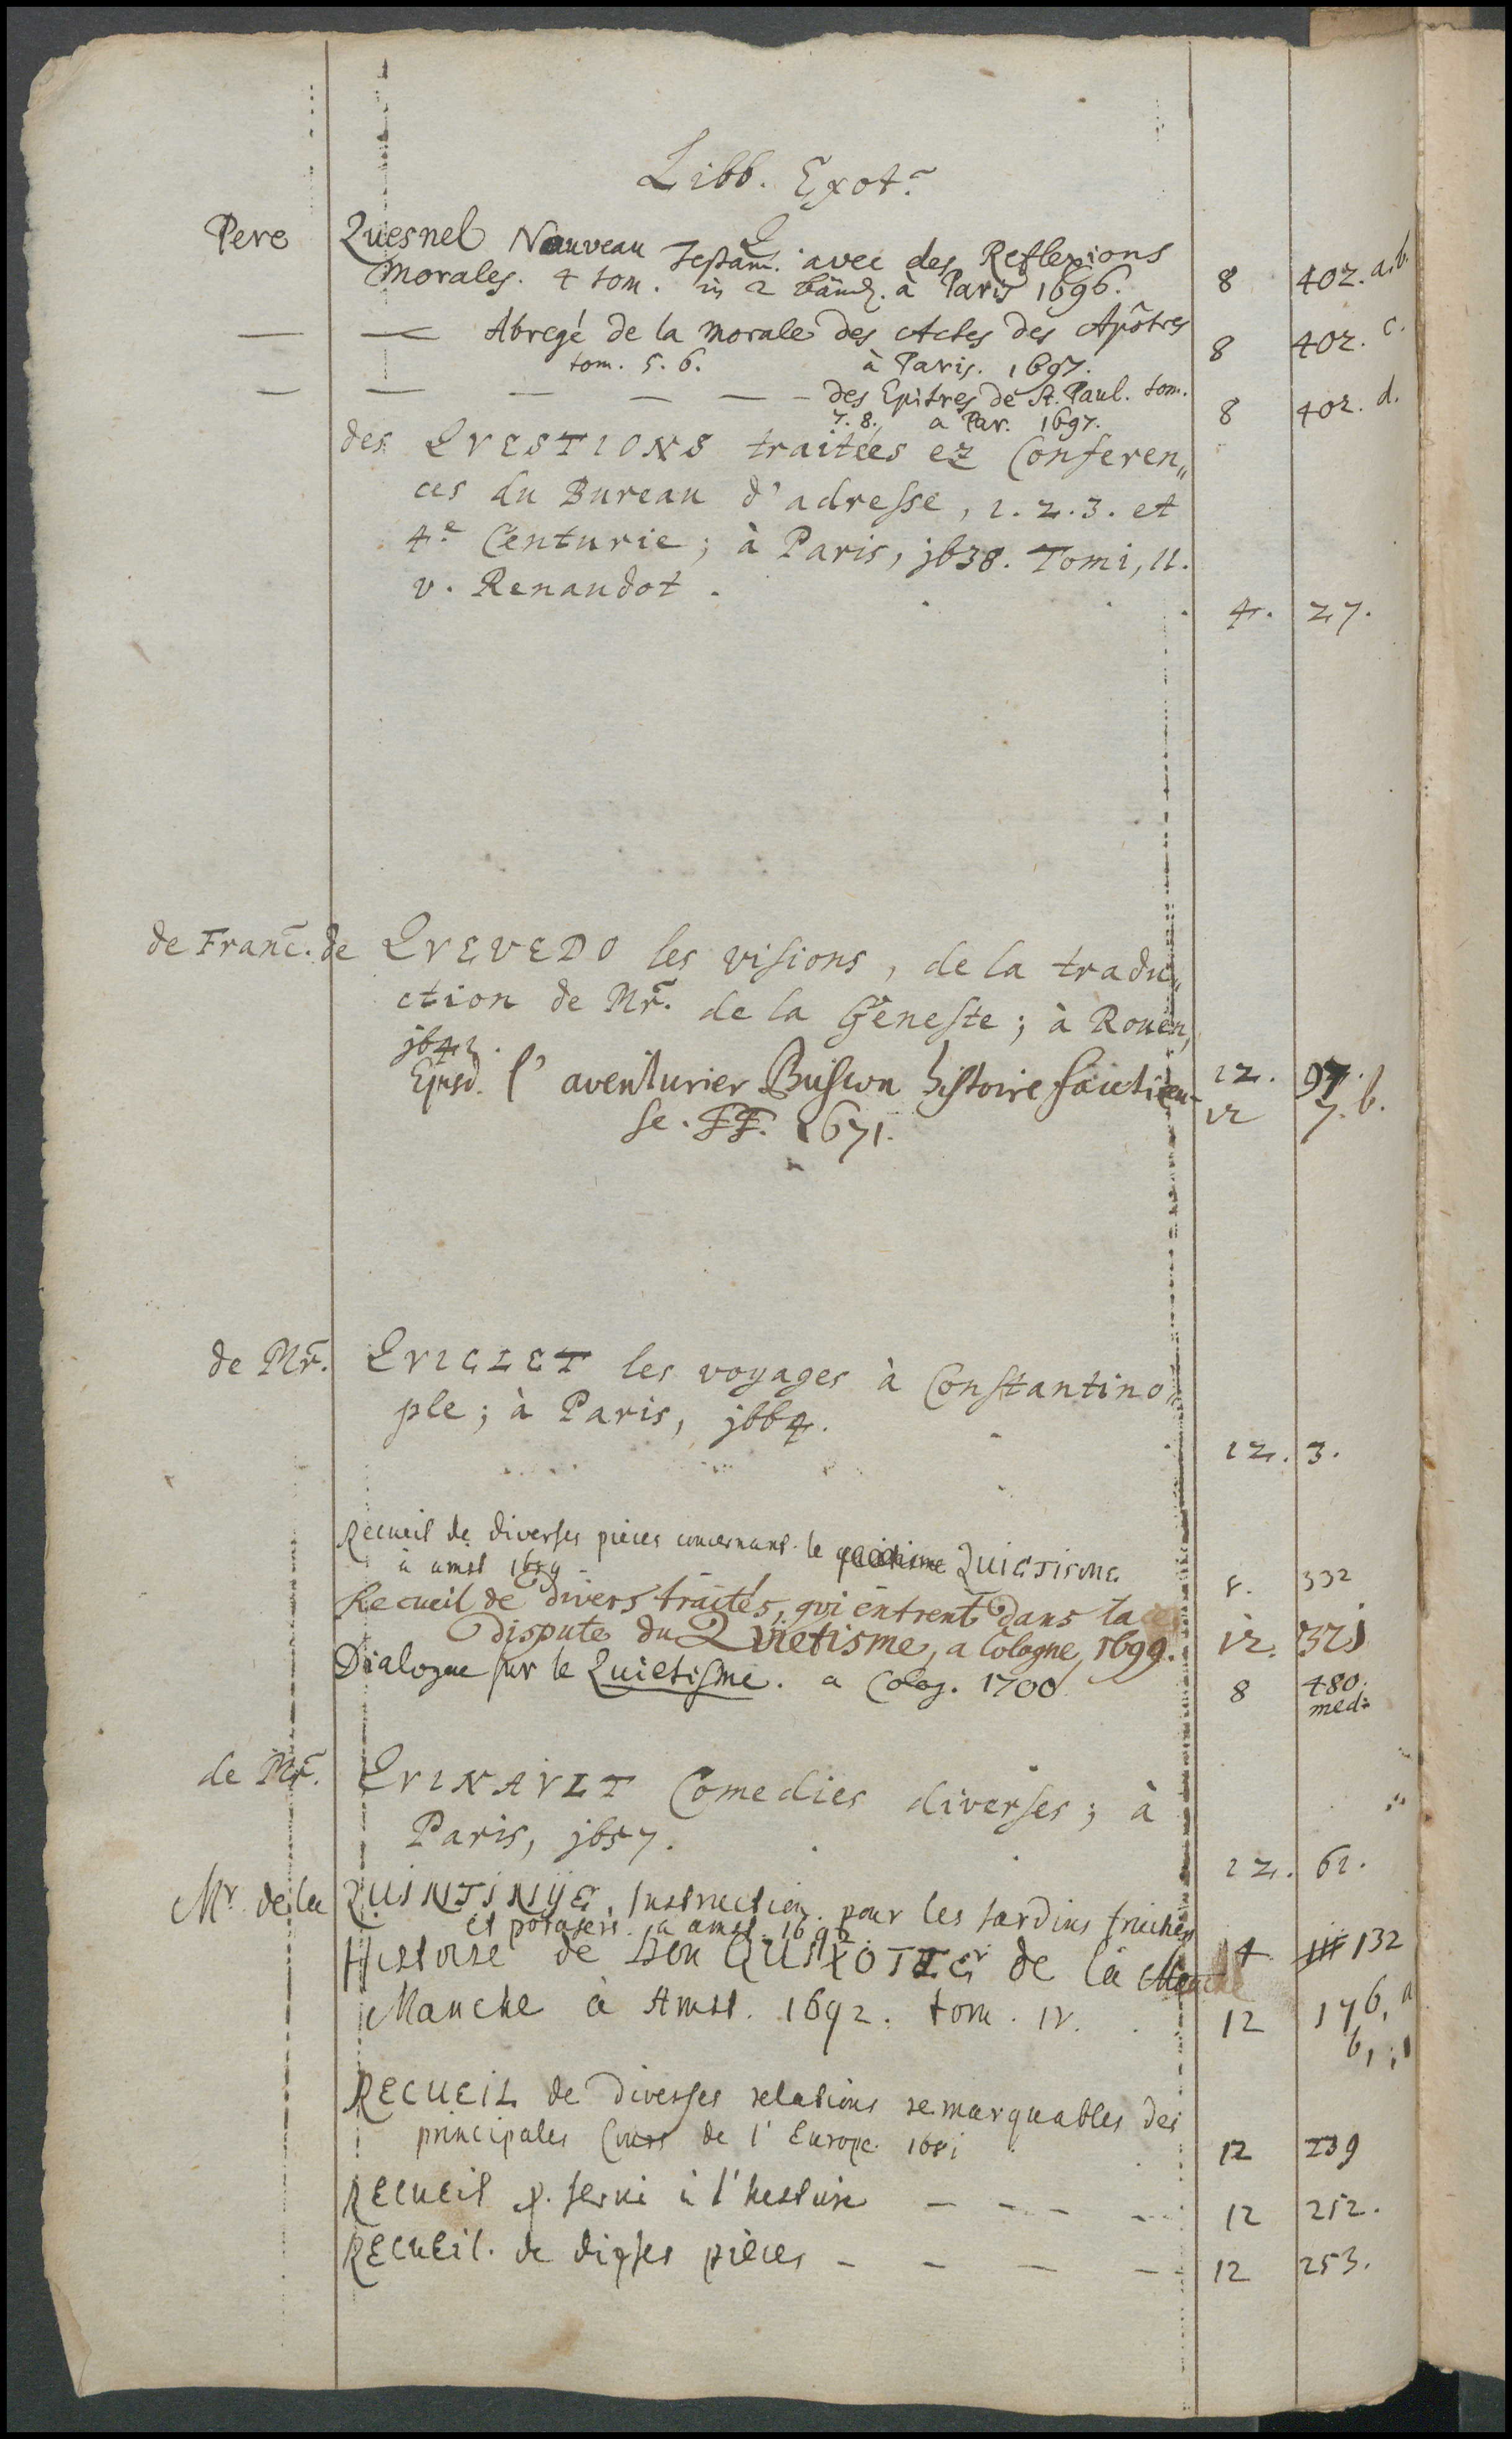 Libb. Exot.
Q
Pere Quesnel Nouveau Testam. avec des Reflexions
Morales. 4 tom. in 2 bänd. à Paris 1696. 8 402. a.b.
— — Abregé de la morale des Actes des Apôtres
tom. 5. 6. à Paris. 1697. 8 402. c.
— — — — — — des Epitres de St. Paul. tom.
7. 8. a Par. 1697. 8 402. d.
des QVESTIONS traitées ez Conferen„
ces du Bureau d'adresse, 1. 2. 3. et
4e Centurie; à Paris, j638. Tomi, II.
v. Renaudot . . . . 4. 27.
de Franc. de QVEVEDO les visions, de la tradu„
ction de Mr. de la Geneste; à Rouen,
j641. 12. 97.
Ejusd. l'aventurier Buscon histoire facetieu-
se. FF. 1671. 12 7. b.
de Mr. QVICLET les voyages à Constantino„
ple; à Paris, j664. . . 12. 3.
Recueil de diverses pieces concernant le QUIETISME
à amst 1689 8. 332
Recueil de divers traités, qui entrent dans la
dispute du Quietisme, a Cologne, 1699. 12. 321
Dialogue sur le Quietisme. a Colog. 1700 8 480.
med.
de Mr. QVINAVLT Comedies diverses; à
Paris, j657. . . 12. 61.
Mr de la QUINTINYE, Instruction pour les Jardins fruitiers
et potagers. a amst. 1692. 4 132
Histoire de Don QUIXOTTE de la Manche
Manche à Amst. 1692. tom. IV. . 12 176, a
b,
RECUEIL de diverses relations remarquables des
principales Cours de l'Europe. 1681 . . 12 239
RECUEIL p. servi à l'histoire — — — — 12 252.
RECUEIL. de divses pièces — — — — 12 253.